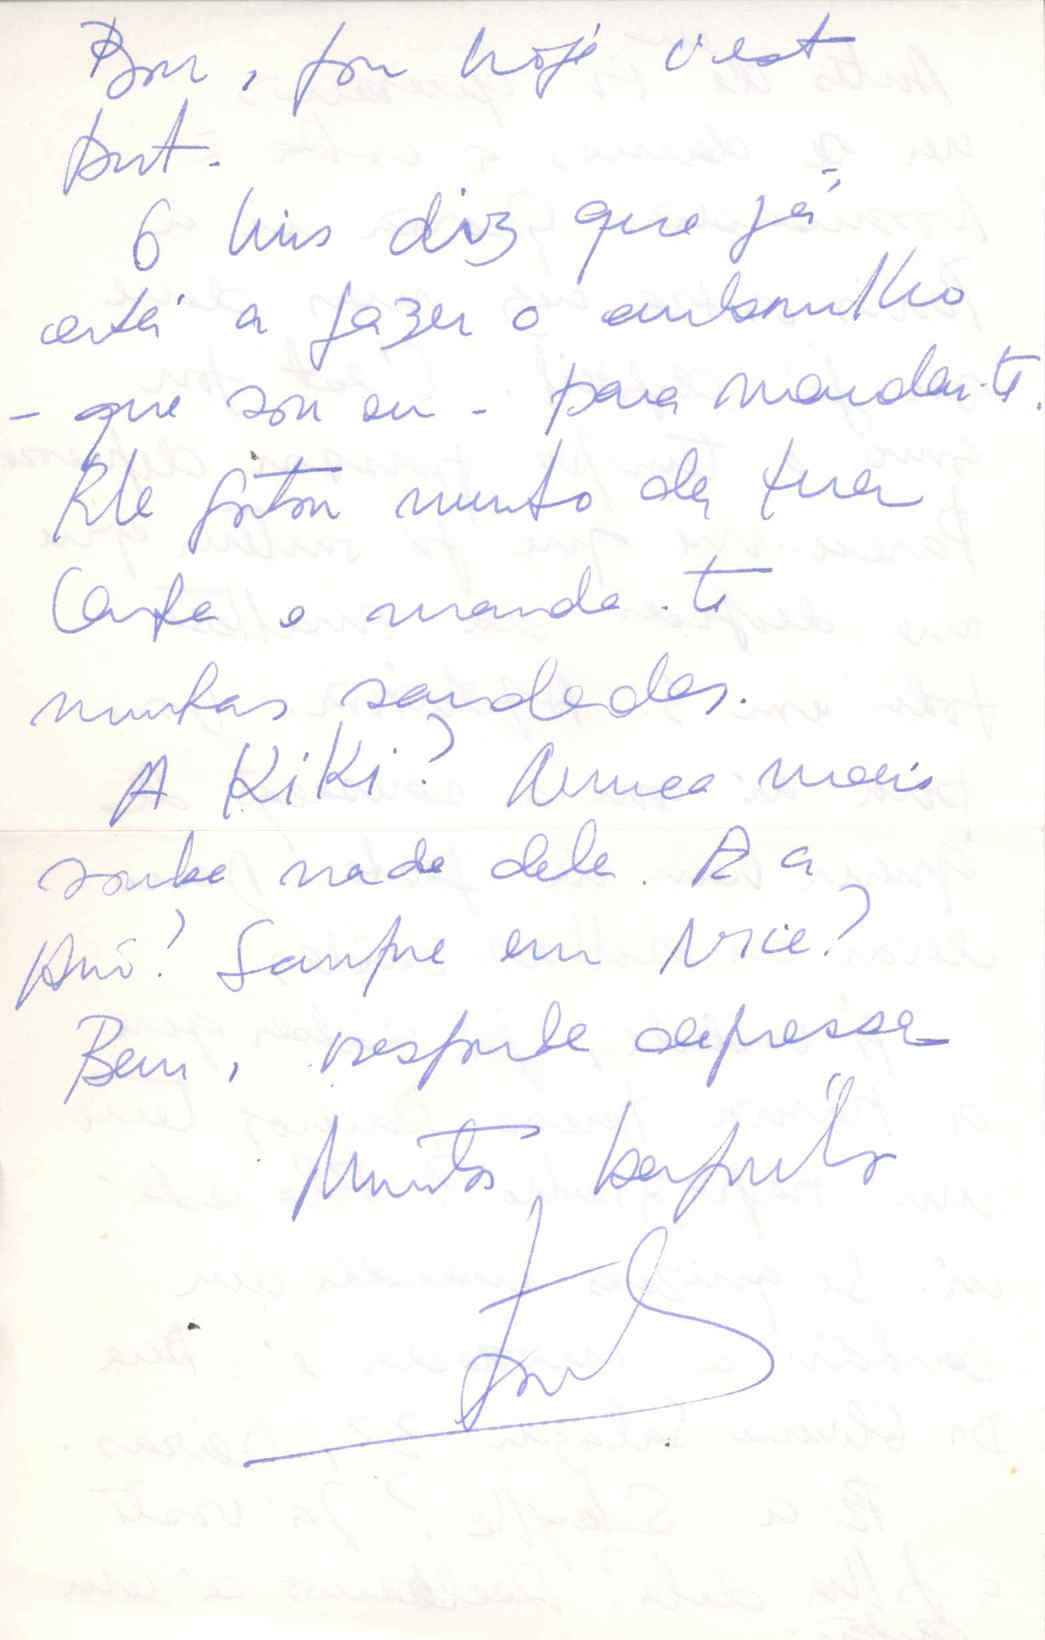 Bon, por hoje c'est
tout.
O Luis diz que já
está a fazer o embrulho
- que sou eu - para mandar-te.
Ele gostou muito da tua
Carta e manda-te
muitas saudades.
A Kiki? Nunca mais
soube nada dela. E a
Anô? Sempre em Nice?
Bem, responde depressa
Muitos